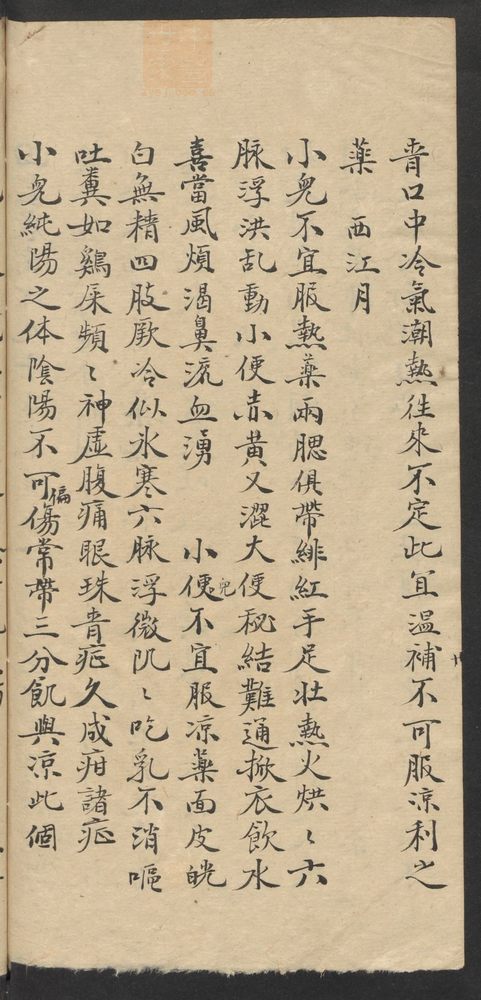 青口中冷氣潮熱往來不定此宜溫補不可服涼利之
薬　西江月
小兒不宜服熱薬兩腮俱帶緋紅手足壯熱火烘〻六
脉浮洪乱動小便赤黃又澀大便秘結難通掀衣飲水
喜當風煩渴鼻流血湧　小便兒不宜服凉薬面皮㿠
白無精四肢厥冷似氷寒六脉浮微肌〻吃乳不消嘔
吐糞如鷄屎頻〻神虛腹痛眼珠青症久成疳諸症
小兒純陽之体陰陽不可偏傷常帶三分飢與凉此個